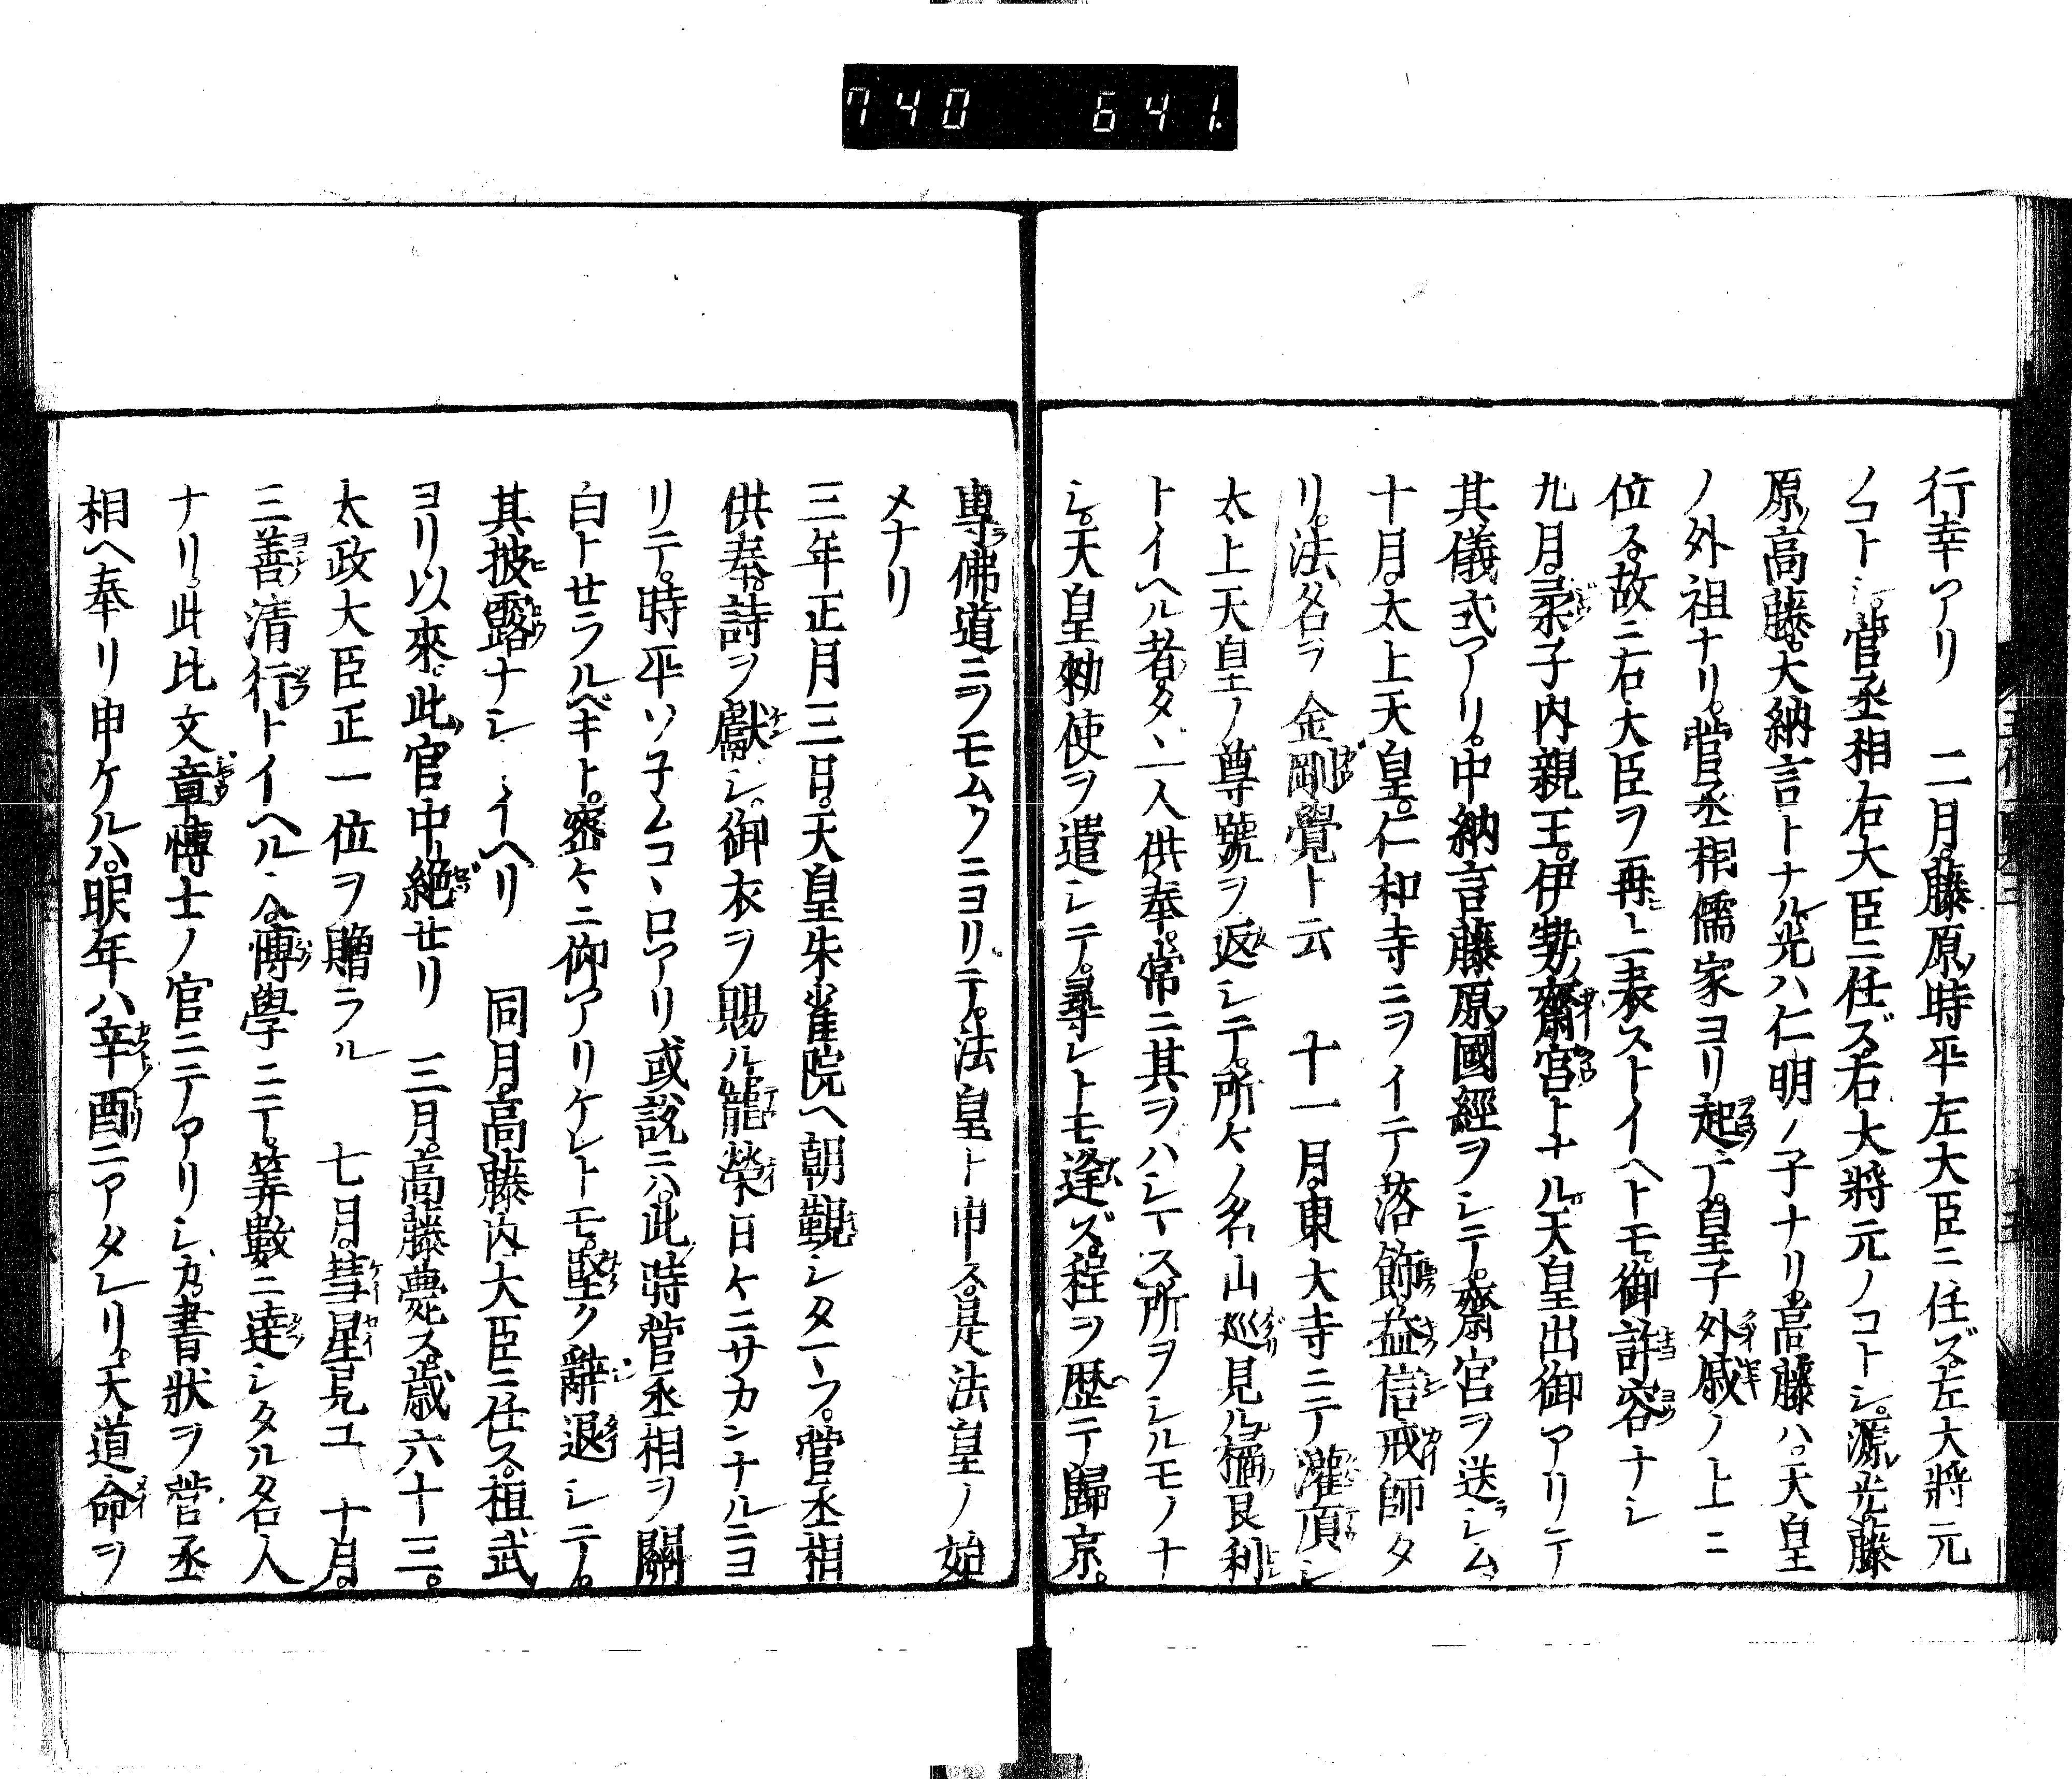 740 641.
行幸アリ 二月。藤原ノ時平左大臣ニ任ズ。左大將元
ノコトシ。菅丞相右大臣ニ任ズ。右大將元ノコトシ。源ノ光。藤
原ノ高藤。大納言トナル。光ハ仁明ノ子ナリ。高藤ハ。天皇
ノ外祖ナリ。菅丞相儒家ヨリ起テ。皇子外戚ノ上ニ
位スル故ニ右大臣ヲ再ヒ上表ストイヘトモ。御許容ナシ
九月。柔子内親王。伊勢ノ齋宮トナル。天皇出御アリテ
其儀式アリ。中納言藤原ノ國經ヲシテ。齋宮ヲ送ラシム。
十月。太上天皇。仁和寺ニヲイテ落餝。益信戒師タ
リ。法名ヲ金剛覺ト云 十一月。東大寺ニテ灌頂シ
太上天皇ノ尊號ヲ返シテ。所々ノ名山巡見ル。橘ノ良利
トイヘル者タヽ一人供奉。常ニ其ヲハシマス所ヲシルモノナ
シ。天皇勅使ヲ遣シテ。尋レトモ逢ズ。程ヲ歴テ歸京。
專ラ佛道ニヲモムクニヨリテ。法皇ト申ス。是法皇ノ始
メナリ
三年正月三日。天皇朱雀院ヘ朝覲シタマフ。菅丞相
供奉。詩ヲ獻シ。御衣ヲ賜ル。寵榮日々ニサカンナルニヨ
リテ。時平ソ子ムコヽロアリ或説ニハ。此時菅丞相ヲ關
白トせラルベキト。密々ニ仰アリケレトモ。堅ク辭退シテ。
其披露ナシトイヘリ 同月。高藤内大臣ニ任ス。桓武
ヨリ以來。此官中絶せリ 三月。高藤薨ス。歳六十三。
太政大臣正一位ヲ贈ラル 七月。彗星見ユ 十月。
三善ノ清行トイヘル人。博學ニテ。筭數ニ達シタル名人
ナリ。此比文章博士ノ官ニテアリシカ。書狀ヲ菅丞
相ヘ奉リ申ケルハ。明年ハ辛酉ニアタレリ。天道命ヲ